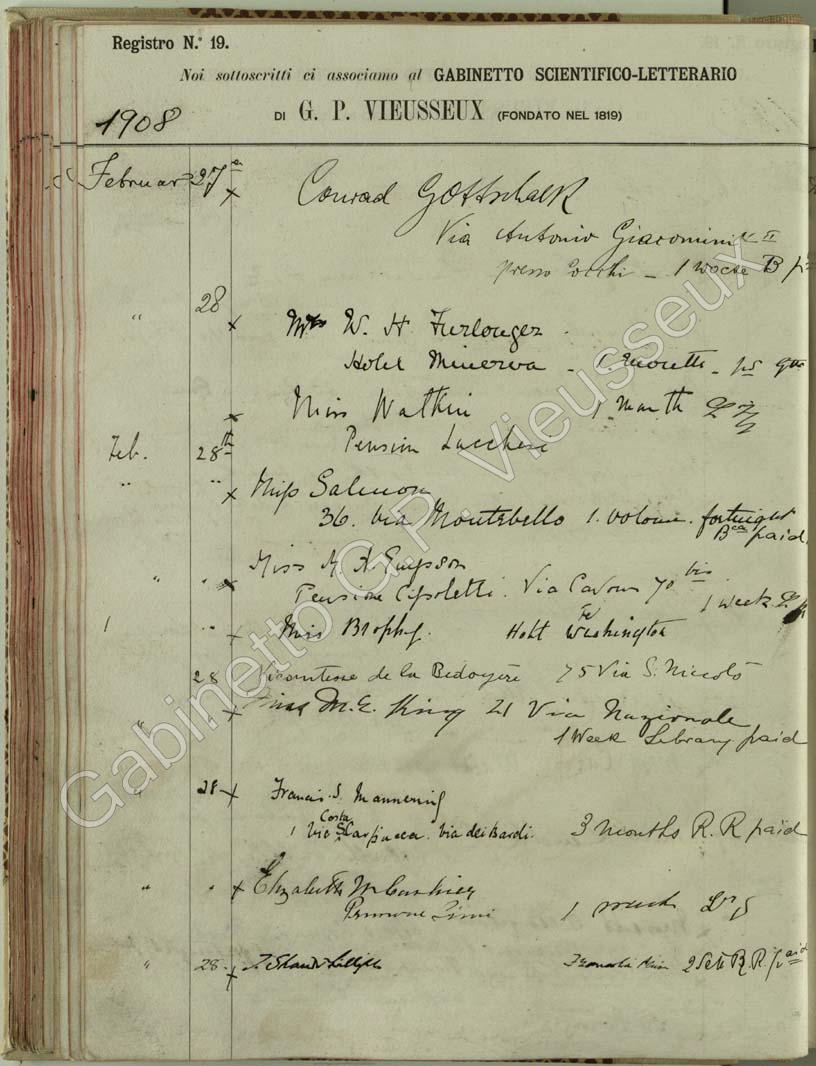 Registro N.° 19.
Noi sottoscritti ci associamo al GABINETTO SCIENTIFICO-LETTERARIO
1908
DI G. P. VIEUSSEUX (FONDATO NEL 1819)
Februar 27 x Conrad Gottschalk
Via Antonio Giacomini II
presso - 1 Woche B
" 28 x Mrs W. H. Furlonger
Hotel Minerva - 1 month -
x Miss Watkin 1 Month
Feb. 28th Pension Lucchesi
" " x Miss Salmon
36. Via Montebello 1. volume. fortnight
Bca paid.
" " x Miss
Pensione Cipoletti. Via Cavour 70 bis
1 week
" x Miss Brophy. Hotel Washington
28 Vicomtesse de la Bédoyère 75 Via S. Niccolò
" " x Miss M. E. King 21 Via Nazionale
1 Week Library paid
" 28 x Francis. S. Mannering
1 Costa Scarpucca. Via dei Bardi. 3 months R. R paid
" " x Elizabeth
Pensione Simi 1 week
" 28. x R. R. paid
Gabinetto G.P. Vieusseux